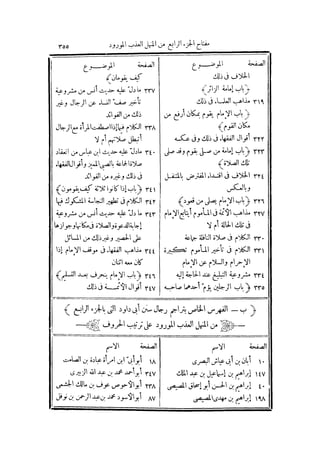 مفتاح الجزء الرابع من المنهل العذب المورود
٣٥٥
الصفحة الموضــوع
الخلاف فى ذلك
﴿باب إمامة الزائر﴾
٣١٩ مذاهب العلمـاء فى ذلك
﴿باب الإمام يقوم بمكان أرفع من
مكان القوم﴾
٣٢٢ أقوال الفقهاء فى ذلك وفى عكسه
٣٢٣ ﴿باب إمامة من صلى بقوم وقد صلى
تلك الصلاة﴾
٣٢٤ الخلاف فى اقتـداء المفترض بالمتنفـل
وبالعكس
٣٢٦ ﴿باب الإمام يصلى من قعود﴾
٣٢٧ مذاهب الأئمة فى المـأموم أيتابع الإمام
فى تلك الحالة أم لا
٣٣٠ الكلام فى صلاة النافلة جماعة
٣٣١ الكلام فى تأخير المـأموم تكبيرة
الإحرام والسلام عن الإمام
٣٣٤ مشروعية التبليغ عند الحاجة إليه
٣٣٥ ﴿باب الرجلين يؤم أحدهما صاحبه
الصفحة الموضــوع
كيف يقومان﴾
٣٣٧ مادل عليه حديث أنس من مشروعية
تأخير صف النساء عن الرجال وغير
ذلك من الفوائد
٣٣٨ الكلام فيما إذا اصطفت المرأة مع الرجال
أتبطل صلاتهم أم لا
٣٤٠ مادل عليه حديث ابن عباس من انعقاد
صلاة الجماعة بالصبى المميز وأقوال الفقهاء
فى ذلك وغيره من الفوائد
٣٤١ ﴿باب إذا كانوا ثلاثة كيف يقومون﴾
٣٤٢ الكلام فى تطهير النجاسة المشكوك فيها
٣٤٣ مادل عليه حديث أنس من مشروعية
إجابة الدعوة والصلاة فى مكانها وجوازها
على الحصير وغير ذلك من المسائل
٣٤٤ مذاهب الفقهاء فى موقف الإمام إذا
كان معه اثنان
٣٤٦ ﴿باب الإمام ينحرف بعد التسليم﴾
٣٤٧ أقوال الأئمــة فى ذلك
﴿ب – الفهرس الخاص بتراجم رجال سنن أبى داود التى بالجزء الرابع﴾
من المنهل العذب المورود على ترتيب الحروف
الصفحة الاسم
١٠ أبان بن أبى عياش البصرى
١٤٧ إبراهيم بن إسماعيل بن عبد الملك
٤٠ إبراهيم بن الحسن أبو إسحاق المصيصى
١٩٨ إبراهيم بن مهدى المصيصى
الصفحة الاسم
١٨ أبو أبىّ ابن امرأة عبادة بن الصامت
٢٤٧ أبو أحمد محمد بن عبد الله الزبيرى
٢٣٨ أبو الأحوص عوف بن مالك الجشمى
٨٧ أبو الأسود محمد بن عبد الرحمن بن نوفل